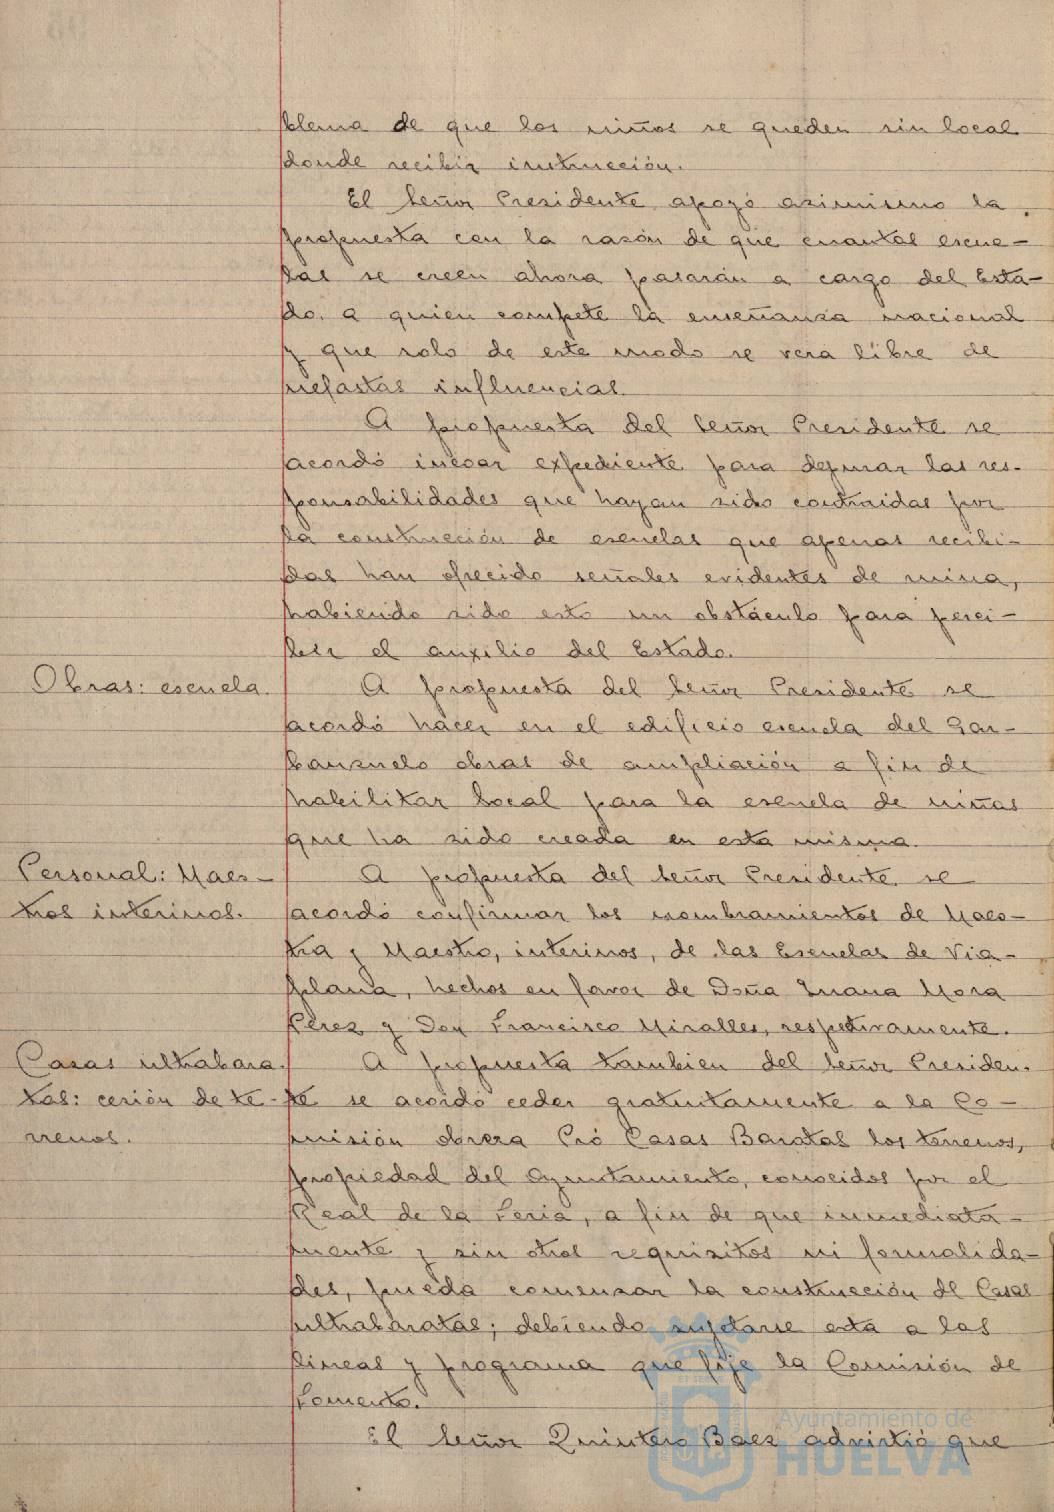 blema de que los niños se queden sin local
donde recibir instrucción.
El Señor Presidente apoyó asimismo la
propuesta con la razón de que cuantas escue-
las se creen ahora pasarán a cargo del Esta-
do, a quien compete la enseñanza nacional
y que solo de este modo se vera libre de
nefastas influencias.
A propuesta del Señor Presidente se
acordó incoar expediente para depurar las res-
ponsabilidades que hayan sido contraidas por
la construcción de escuelas que apenas recibi-
das han ofrecido señales evidentes de ruina,
habiendo sido esto un obstáculo para perci-
bir el auxilio del Estado.
Obras: escuela.
A propuesta del Señor Presidente se
acordó hacer en el edificio escuela del Gar-
banzuelo obras de ampliación a fin de
habilitar local para la escuela de niñas
que ha sido creada en esta misma.
Personal: Maes-
tros interinos.
A propuesta del Señor Presidente se
acordó confirmar los nombramientos de Maes-
tra y Maestro, interinos, de las Escuelas de Via-
plana, hechos en favor de Doña Juana Mora
Pérez y Don Francisco Miralles, respetivamente.
Casas ultrabara
tas: cesión de te-
rrenos.
A propuesta tambien del Señor Presiden-
te se acordó ceder gratuitamente a la Co-
misión obrera Pró Casas Baratas los terrenos,
propiedad del Ayuntamiento, conocidos por el
Real de la Feria, a fin de que inmediata-
mente y sin otros requisitos ni formalida-
des, pueda comenzar la construcción de Casas
ultrabaratas; debiendo sujetarse esta a las
lineas y programa que fije la Comisión de
Fomento.
El Señor Quintero Baez advirtió que
Ayuntamiento de
HUELVA